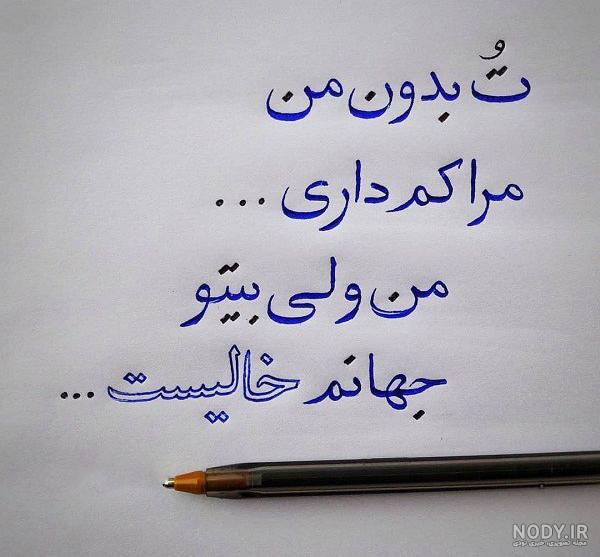 تُو بدون من
مرا کم داری ...
من ولی بیتو
جهانم خالیست ...
NODY.IR
مجله تصویری، خبری نودی